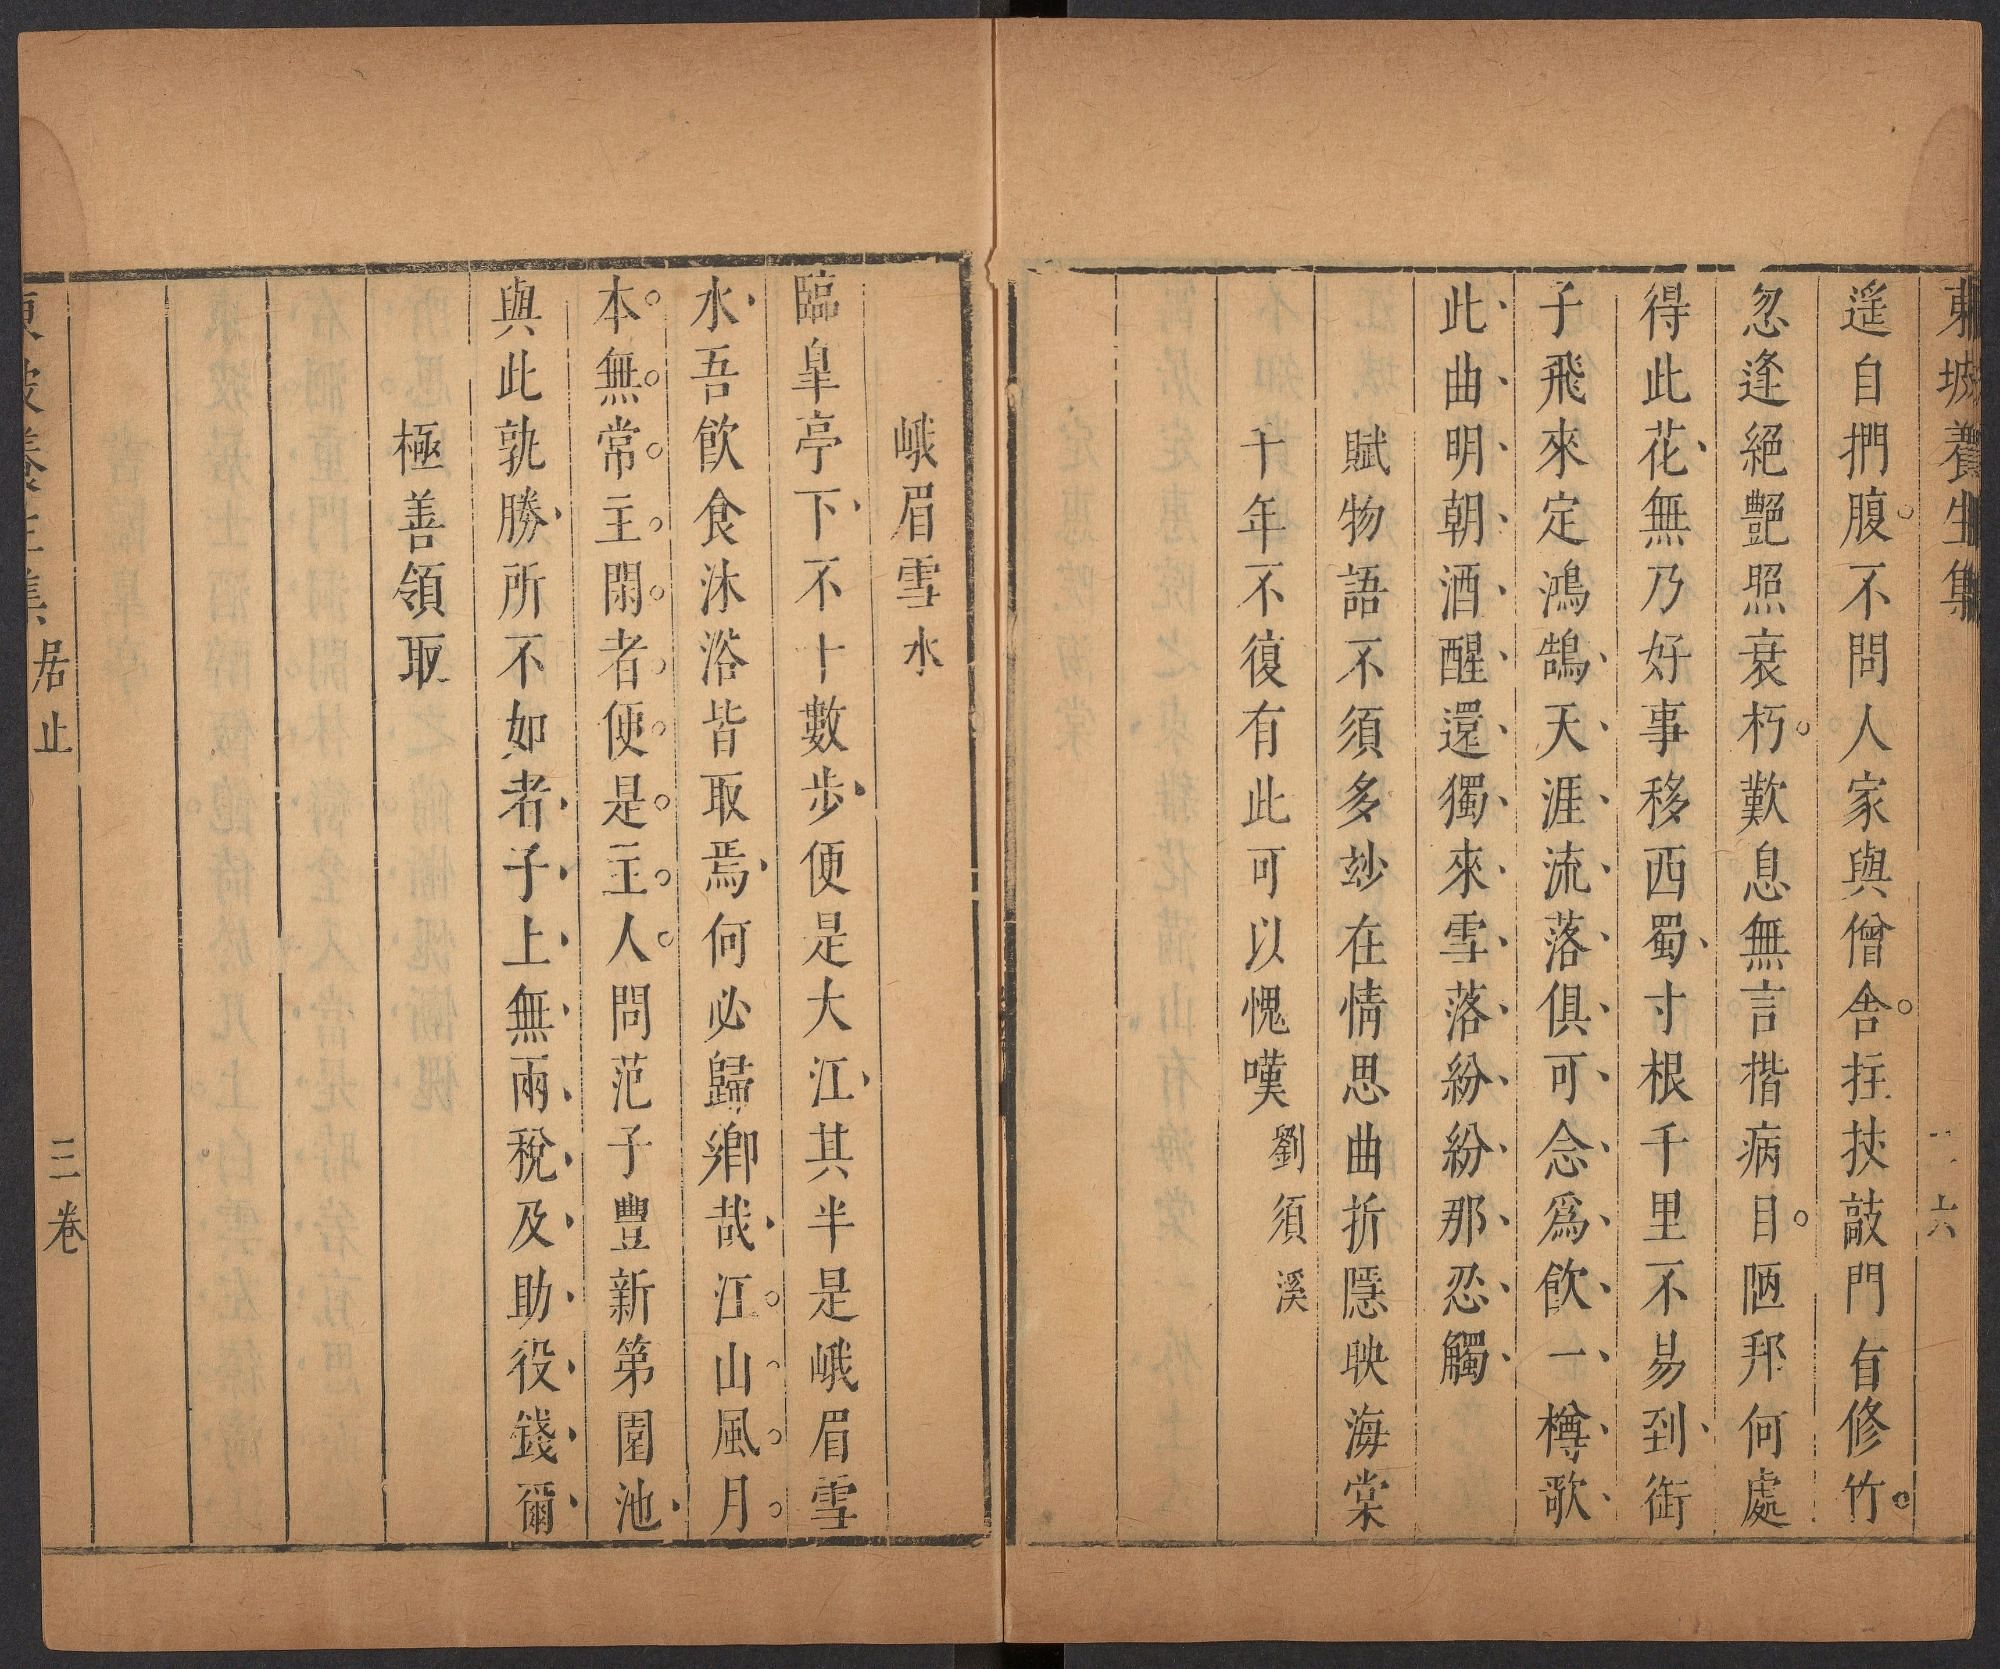 東坡養生集
遥自捫腹不問人家與僧舎拄扙敲門㸔修竹
忽逢絕艷照衰朽歎息無言揩病目陋邦何處
得此花無乃好事移西蜀寸根千里不易到銜
子飛來定鴻鵠天涯流落俱可念爲飲一樽歌
此曲明朝酒醒還獨來雪落紛紛那忍觸
賦物語不須多妙在情思曲折隱映海棠
十年不復有此可以愧嘆劉須溪
峨眉雪水
臨臯亭下不十數步便是大江其半是峨眉雪
水吾飲食沐浴皆取焉何必歸鄉哉江山風月
本無常主閑者便是主人問范子豐新第園池
與此孰勝所不如者子上無兩稅及助役錢爾
極善領取
東坡養生集 居止 三卷